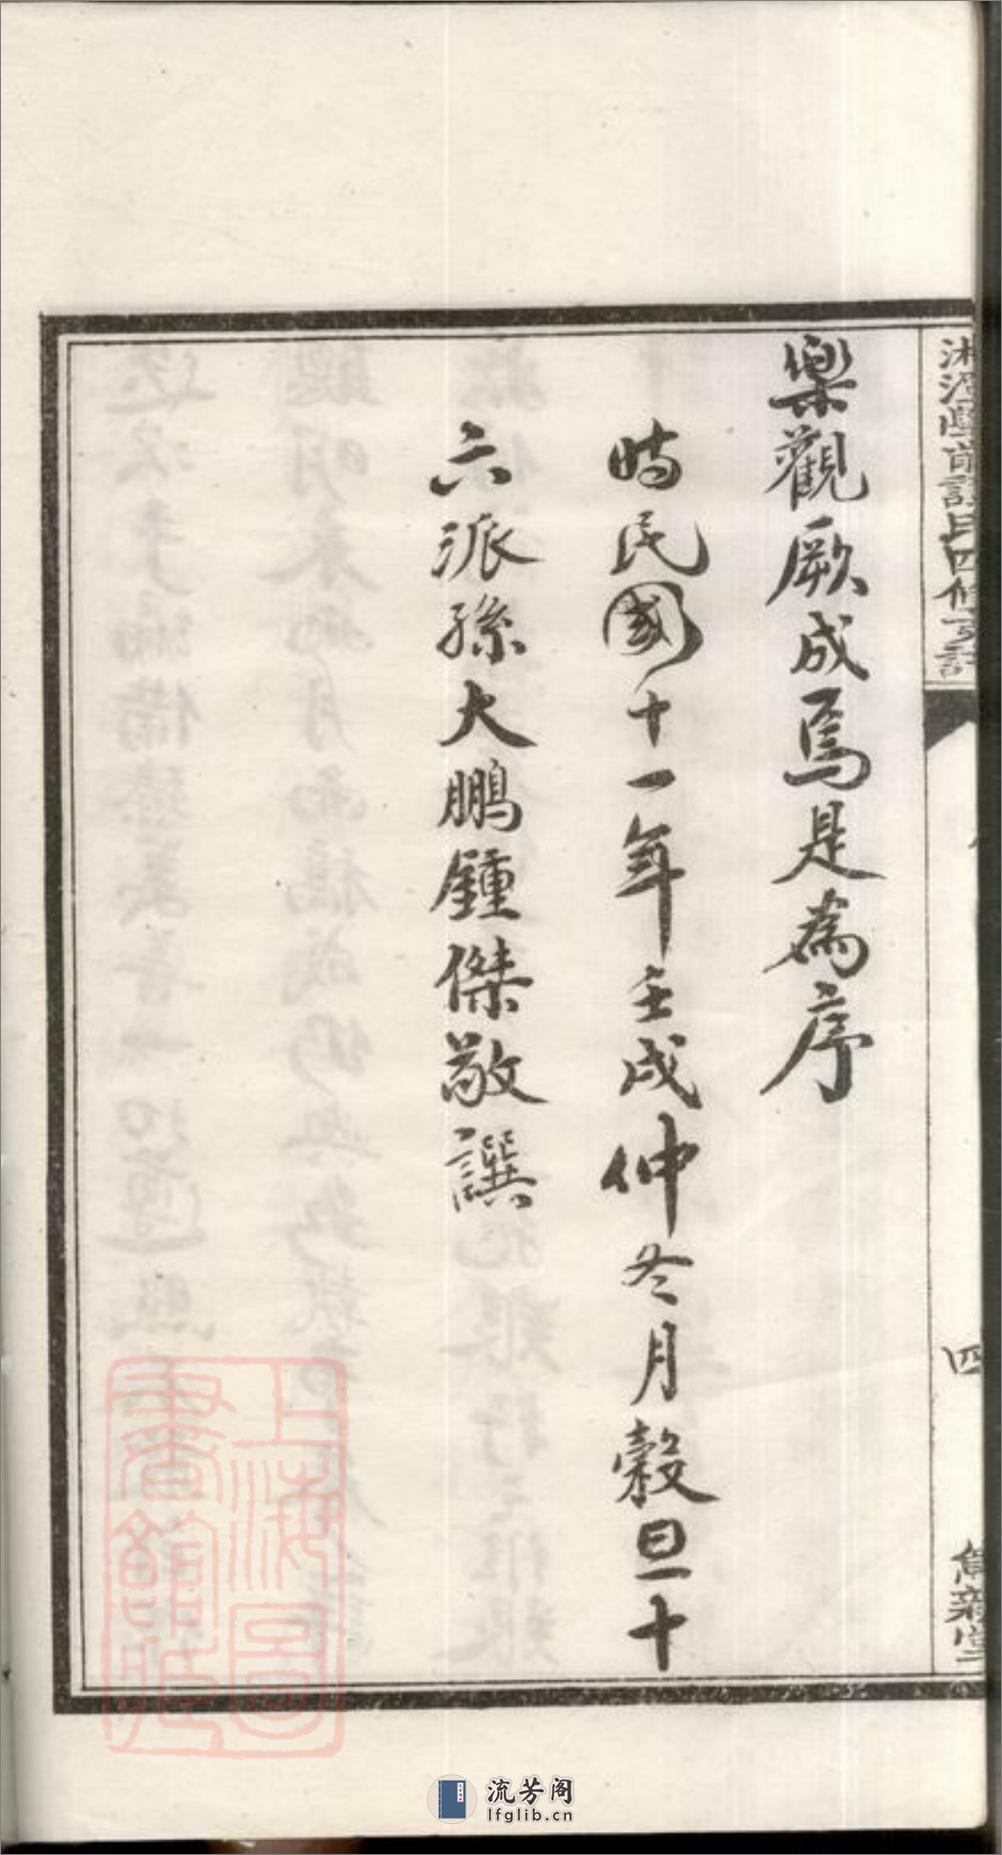 樂觀厥成焉是為序
時民國十一年壬戌仲冬月穀旦十
六派孫大鵬鍾傑敬譔
氏四修支譜
四
上海圖書館藏
流芳阁
lfglib.cn